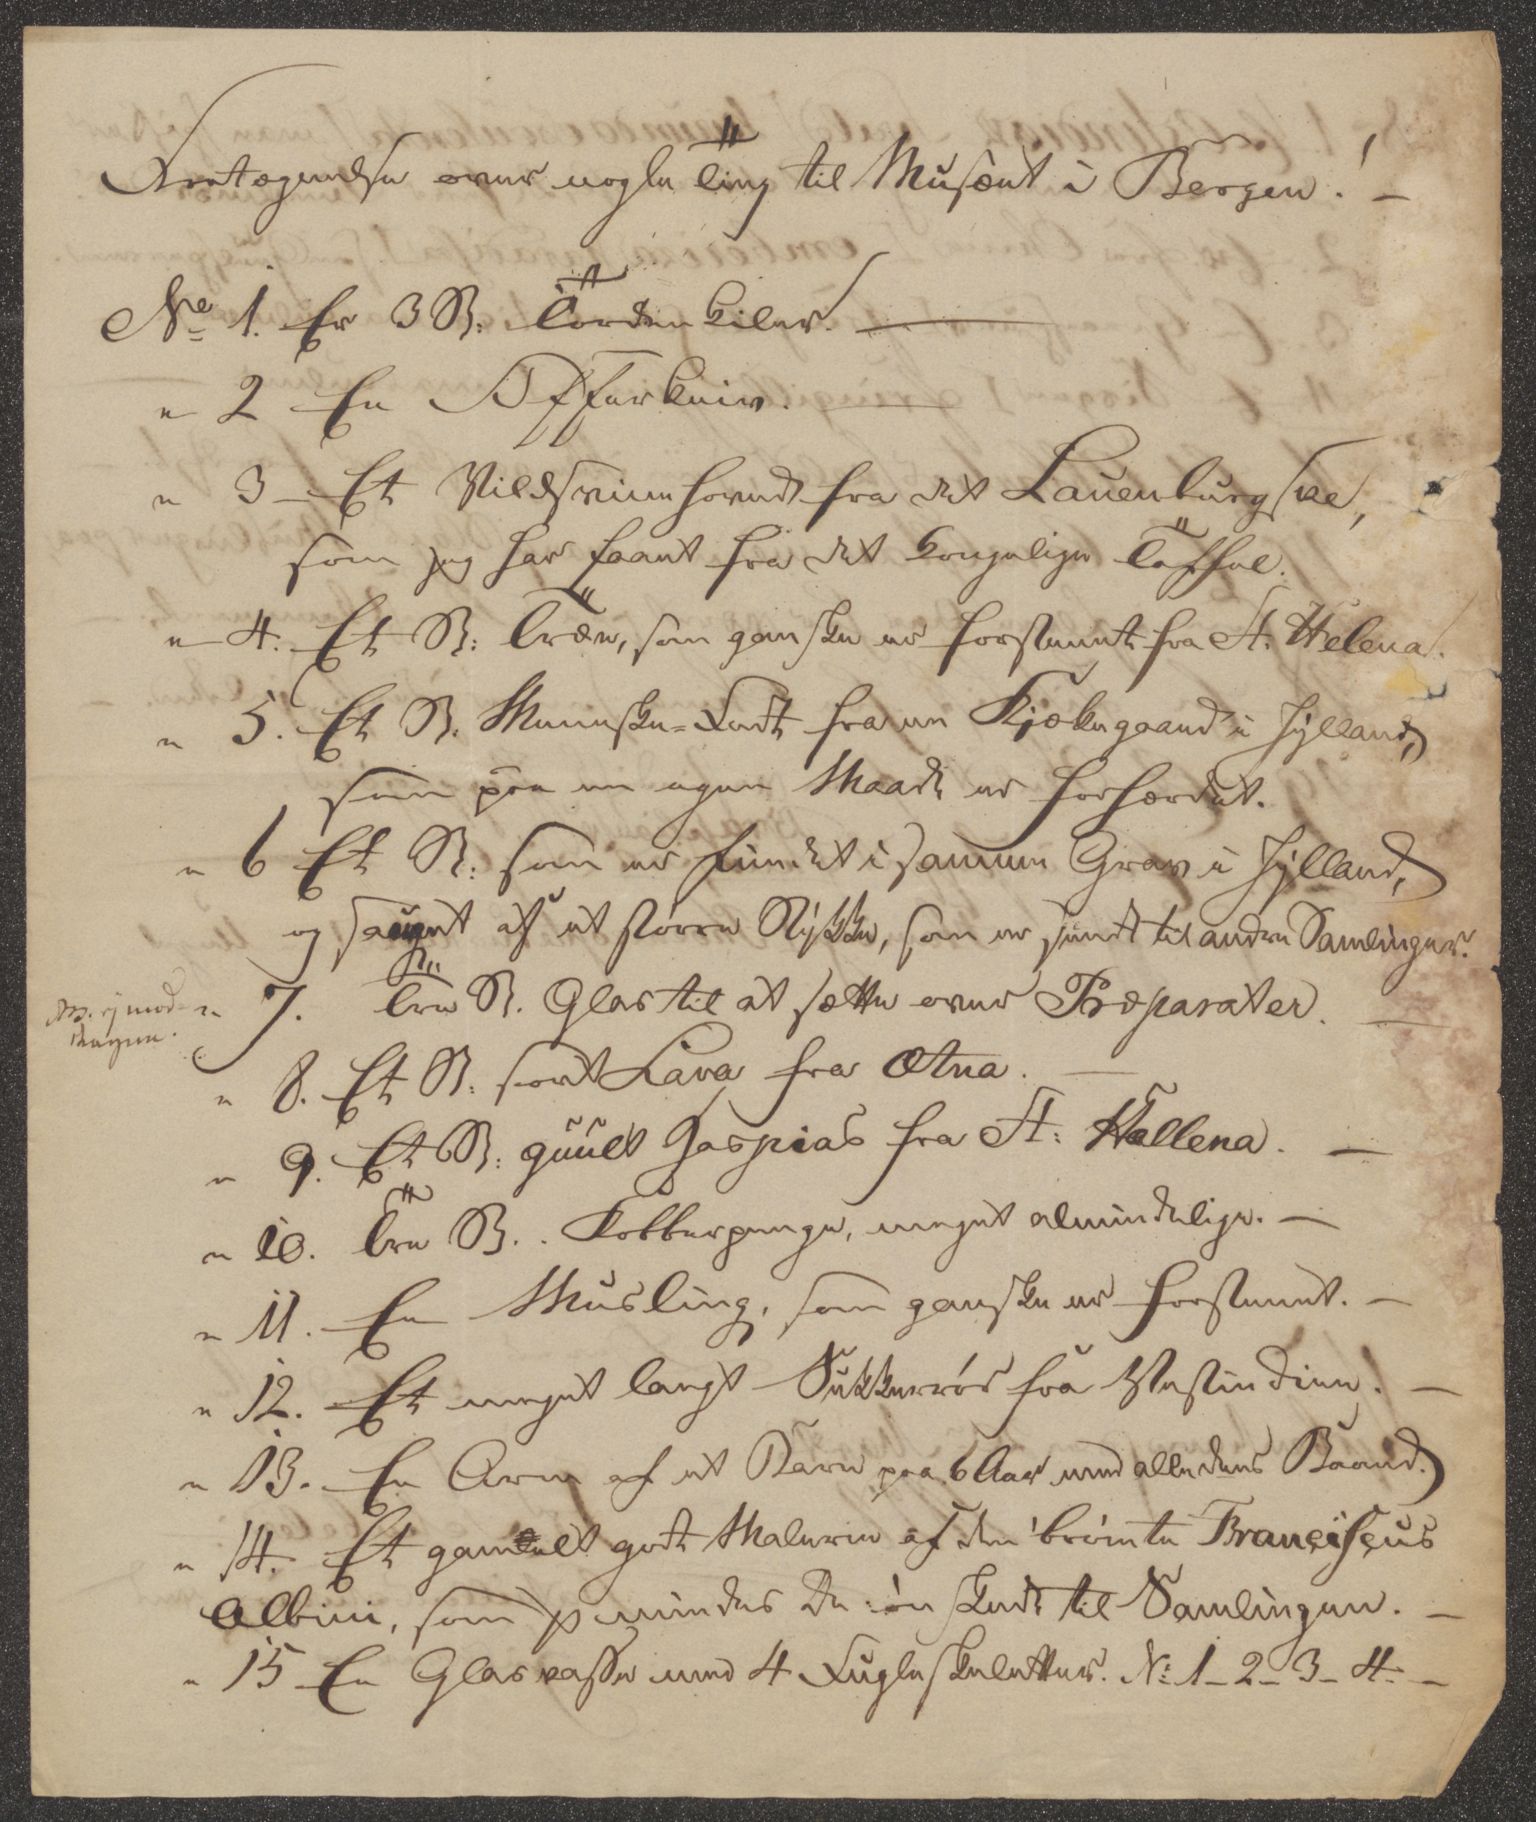 Fortegnelse over nogle Ting til Musæet i Bergen. —
No 1. Er 3 St: Tordenkiler. —
" 2 En Offerkniv. —
" 3 – Et Vildsviinhoved fra det Lauenburgske,
som jeg har faaet fra det kongelige Taffel.
" 4. Et St: Træe, som ganske er forstenet fra St. Helena.
" 5. Et St. Menneske=Fedt fra en Kjækegaard i Jylland,
som paa en egen Maade er forhærdet.
" 6 Et St: som er fundet i samme Grav i Jylland,
og sauget af et större Stÿkke, som er sendt til andre Samlinger.
NB. ej mod-
tagen.
" 7. Tre St. Glas til at sætte over Præparater. —
" 8. Et St: sort Lava fra Ætna. —
" 9. Et St: guult Jaspias fra St: Hellena. —
" 10. Tre St. Kobberpenge, meget almindelige. —
" 11. En Musling, som ganske er forstenet. —
" 12. Et meget langt Sukkerrör fra Vestindien. —
" 13. En Arm af et Barn paa 6 Aar med alle dens Baand.
" 14. Et gammelt godt Malerie af den brömte Franciscus
Albini, som er mindes De önskede til Samlingen. —
" 15 En Glaskasse med 4 Fugleskeletter. No: 1 – 2 – 3 – 4. —